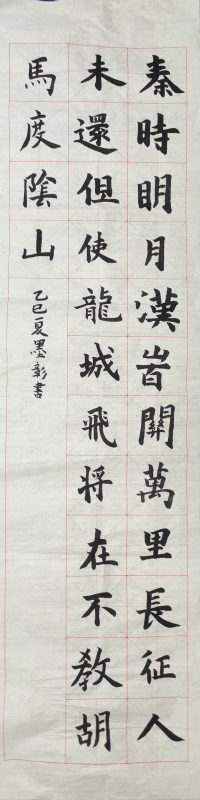 秦時明月漢旹關萬里長征人
未還但使龍城飛将在不教胡
馬度陰山
乙巳夏墨彰書